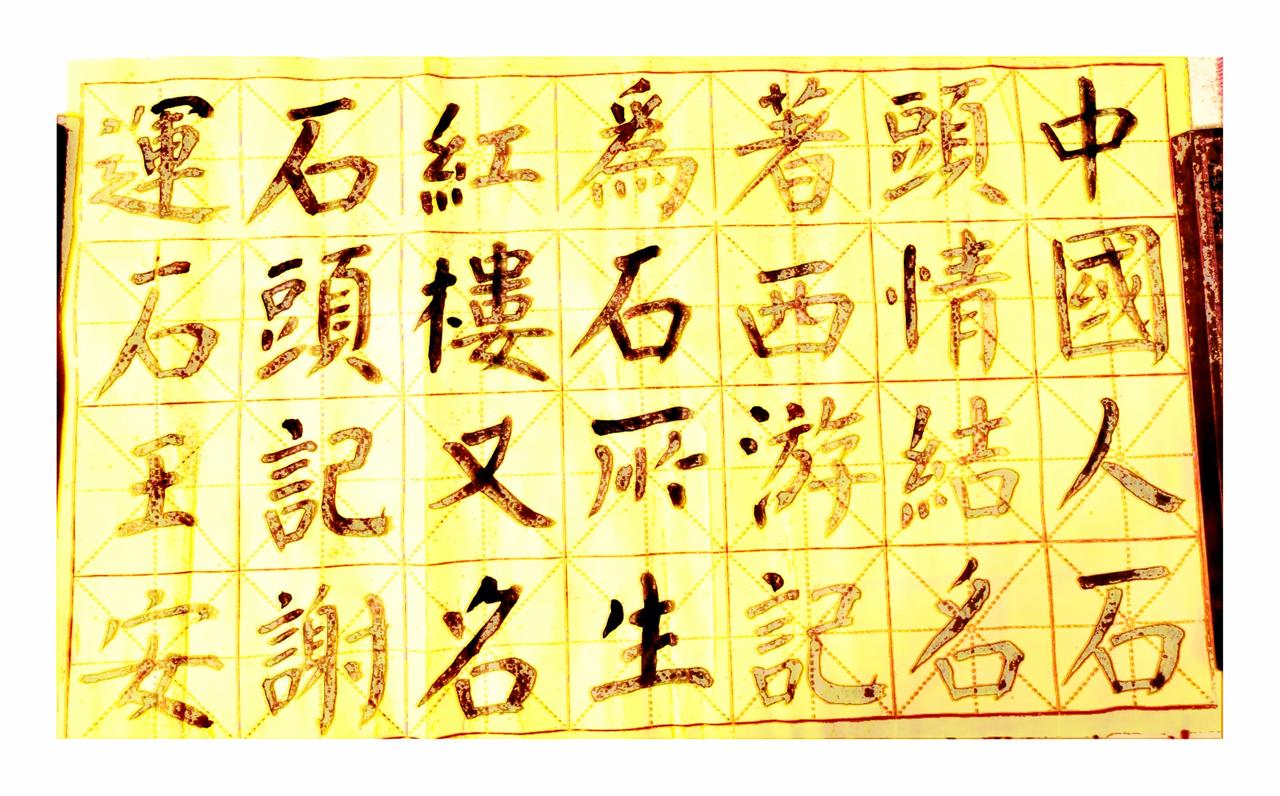 中國人石
頭情結名
著西游記
為石所生
紅樓又名
石頭記謝
運石王安